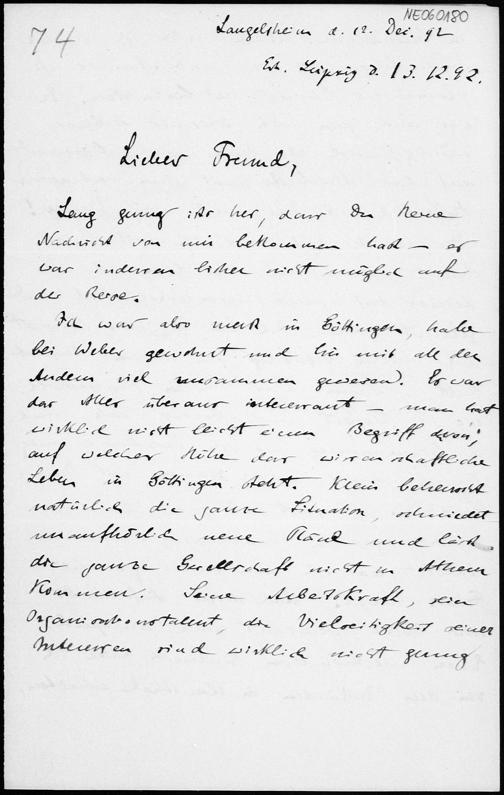 NE060180
74
Langelsheim d. 12. Dec. 92
Erh. Leipzig d. 13.12.92.
Lieber Freund,
Lang genug ists her, dass Du keine
Nachricht von mir bekommen hast – es
war indessen bisher nicht möglich auf
der Reise.
Ich war also erst in Göttingen, habe
bei Weber gewohnt und bin mit all den
Andern viel zusammen gewesen. Es war
das Alles überaus interessant – man hat
wirklich nicht leicht einen Begriff davon,
auf welcher Höhe das wissenschaftliche
Leben in Göttingen steht. Klein beherrscht
natürlich die ganze Situation, schmiedet
unaufhörlich neue Pläne und lässt
die ganze Gesellschaft nicht zu Athem
kommen. Seine Arbeitskraft, sein
Organisationstalent, die Vielseitigkeit seiner
Interessen sind wirklich nicht genug